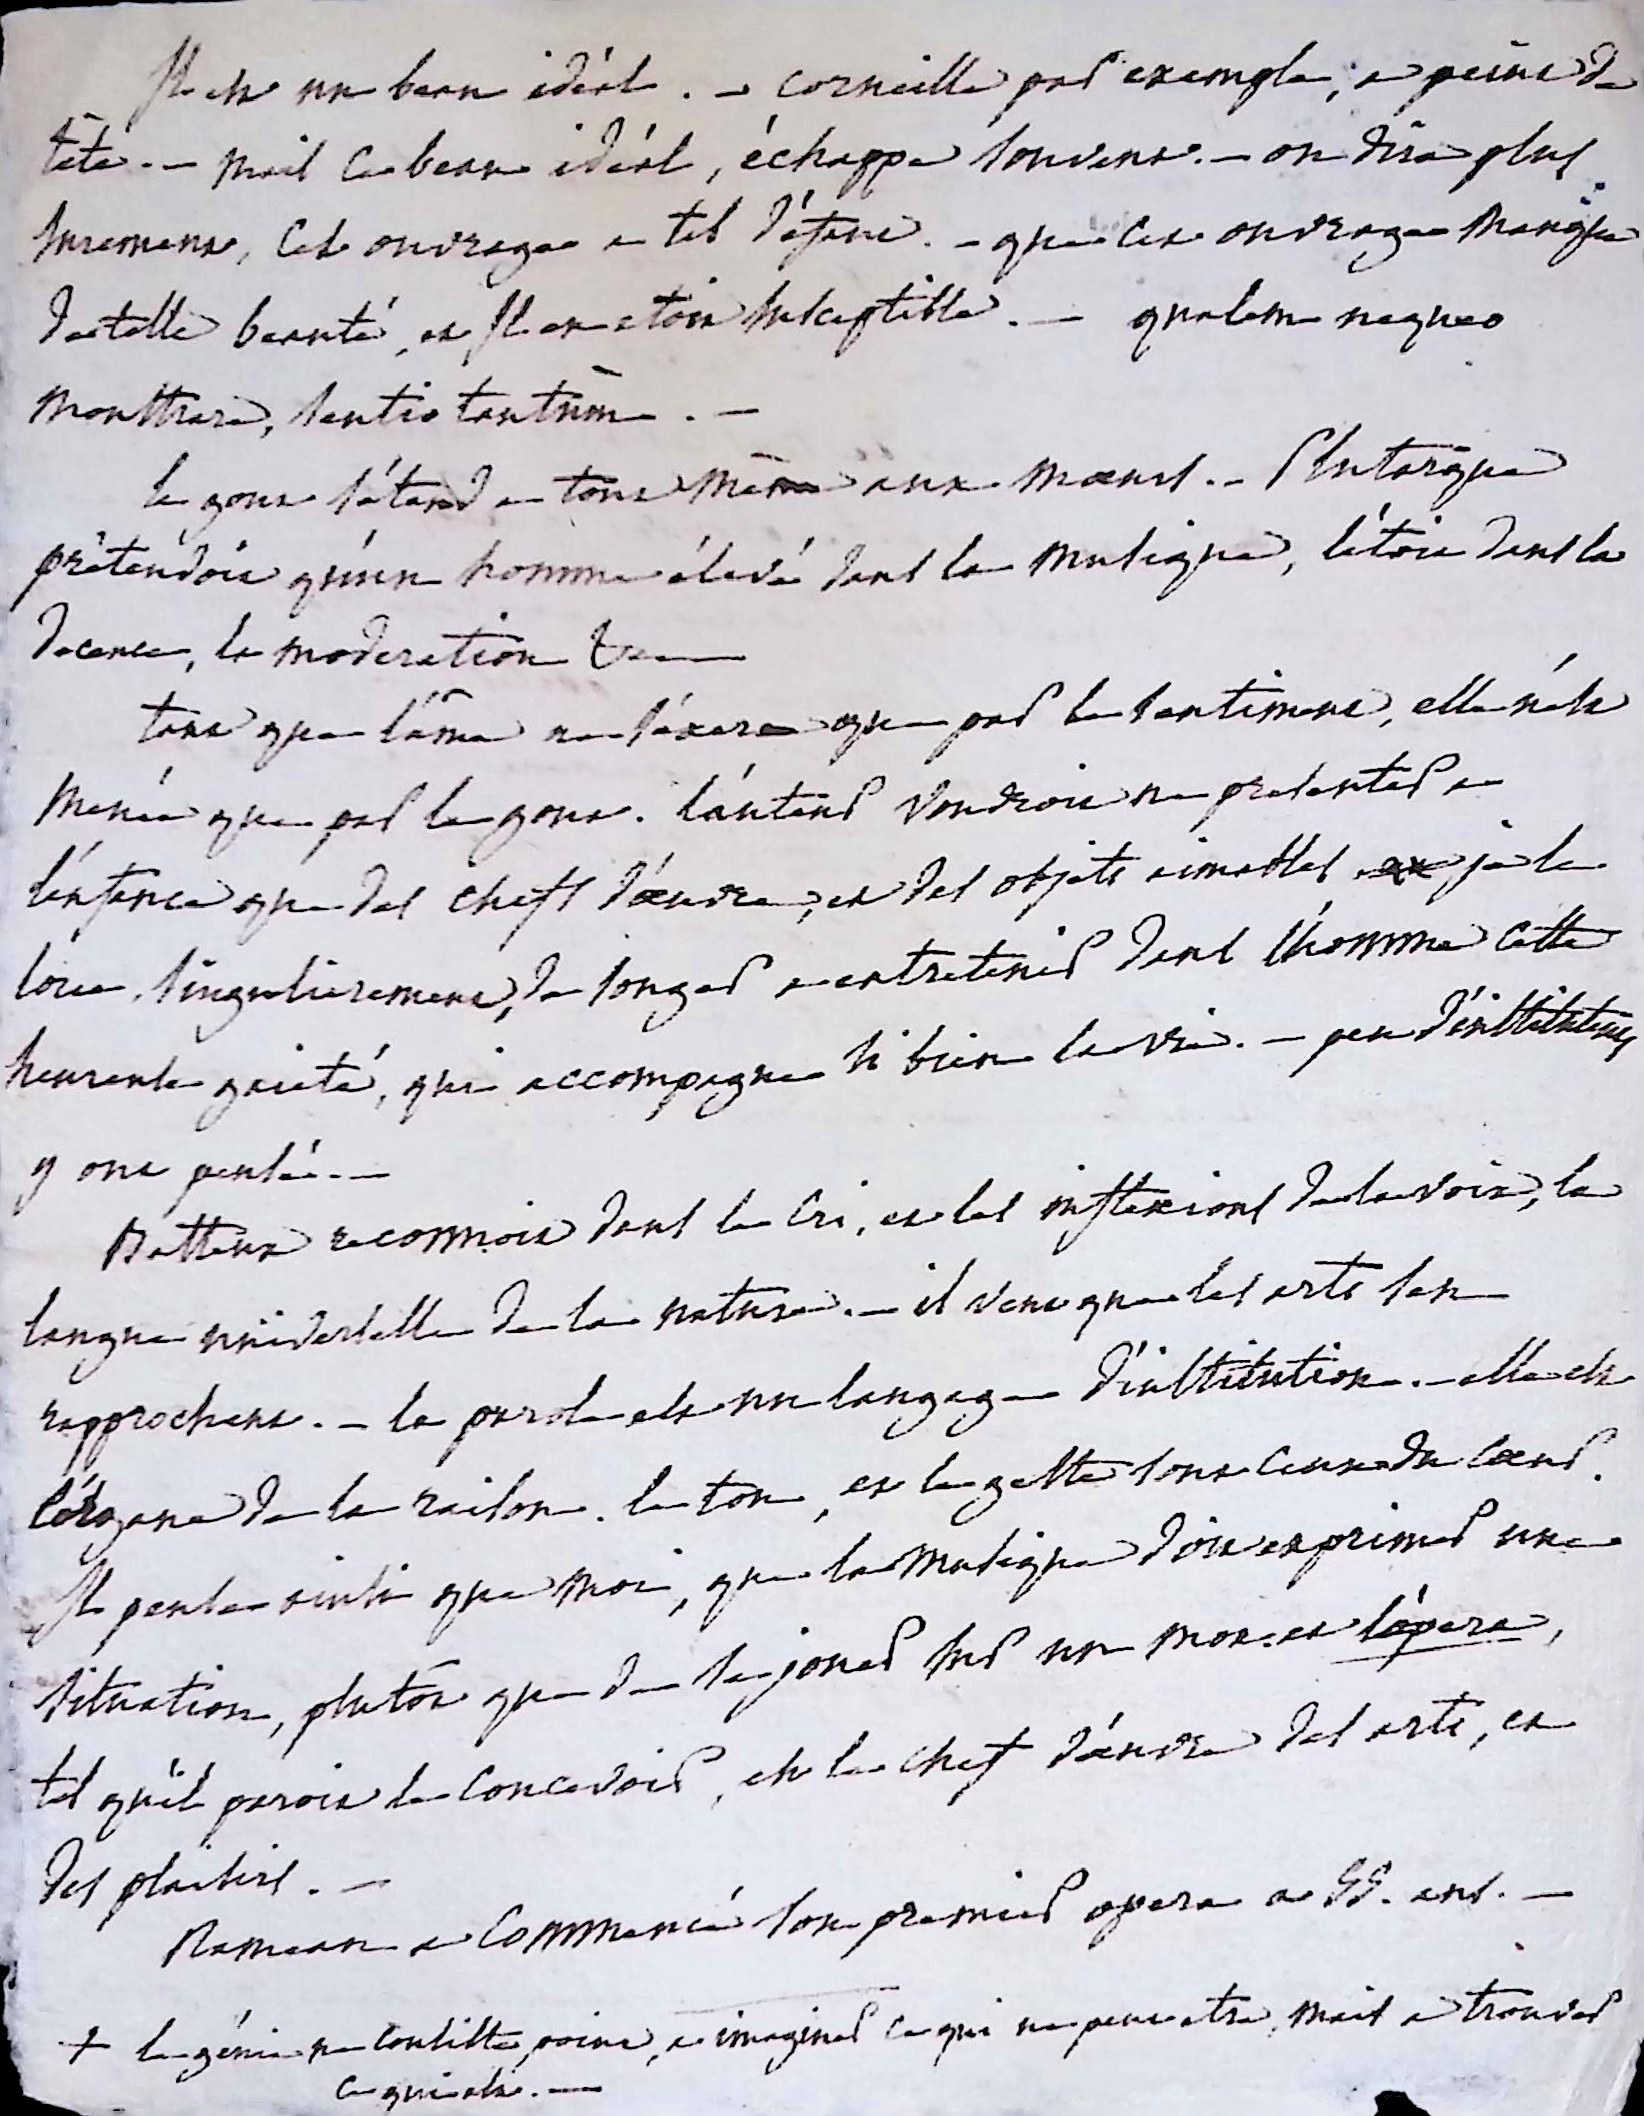 Il est un beau idéal. – Corneille par exemple, a peint de
tête. – mais ce beau idéal, échappe souvent. – on dira plus
surement, cet ouvrage a tel défaut. – que cet ouvrage manque
de telle beauté, et Il en etoit susceptible. – qualem nequeo
monstrare, sentio tantùm. –
le gout s'étend a tout même aux mœurs. – Plutarque
prétendoit qu'un homme élevé dans la musique, l'étoit dans la
decence, la moderation &c
tant que l'âme ne s'éxerce que par le sentiment, elle n'est
menée que par le gout. l'auteur voudroit ne presenter a
l'enfance que des chefs d'œuvre, et des objets aimables je le
loue singulierement, de songer a entretenir dans l'homme cette
heureuse gaieté, qui accompagne si bien la vie. – peu d'instituteurs
y ont pensé. –
Batteux reconnoit dans le cri, et les inflexions de la voix, la
langue universelle de la nature. – il veut que les arts s'en
rapprochent. – la parole est un langage d'institution. – elle est
l'organe de la raison. le ton, et le geste sont ceux du cœur.
Il pense ainsi que moi, que la musique doit exprimer une
situation, plutôt que de se jouer sur un mot. et l'opera,
tel qu'il paroit le concevoir, est le chef d'œuvre des arts, et
des plaisirs. –
Rameau a commencé son premier opera a 55. ans. –
+ le génie ne consiste point, a imaginer ce qui ne peut etre, mais a trouver
ce qui est. –